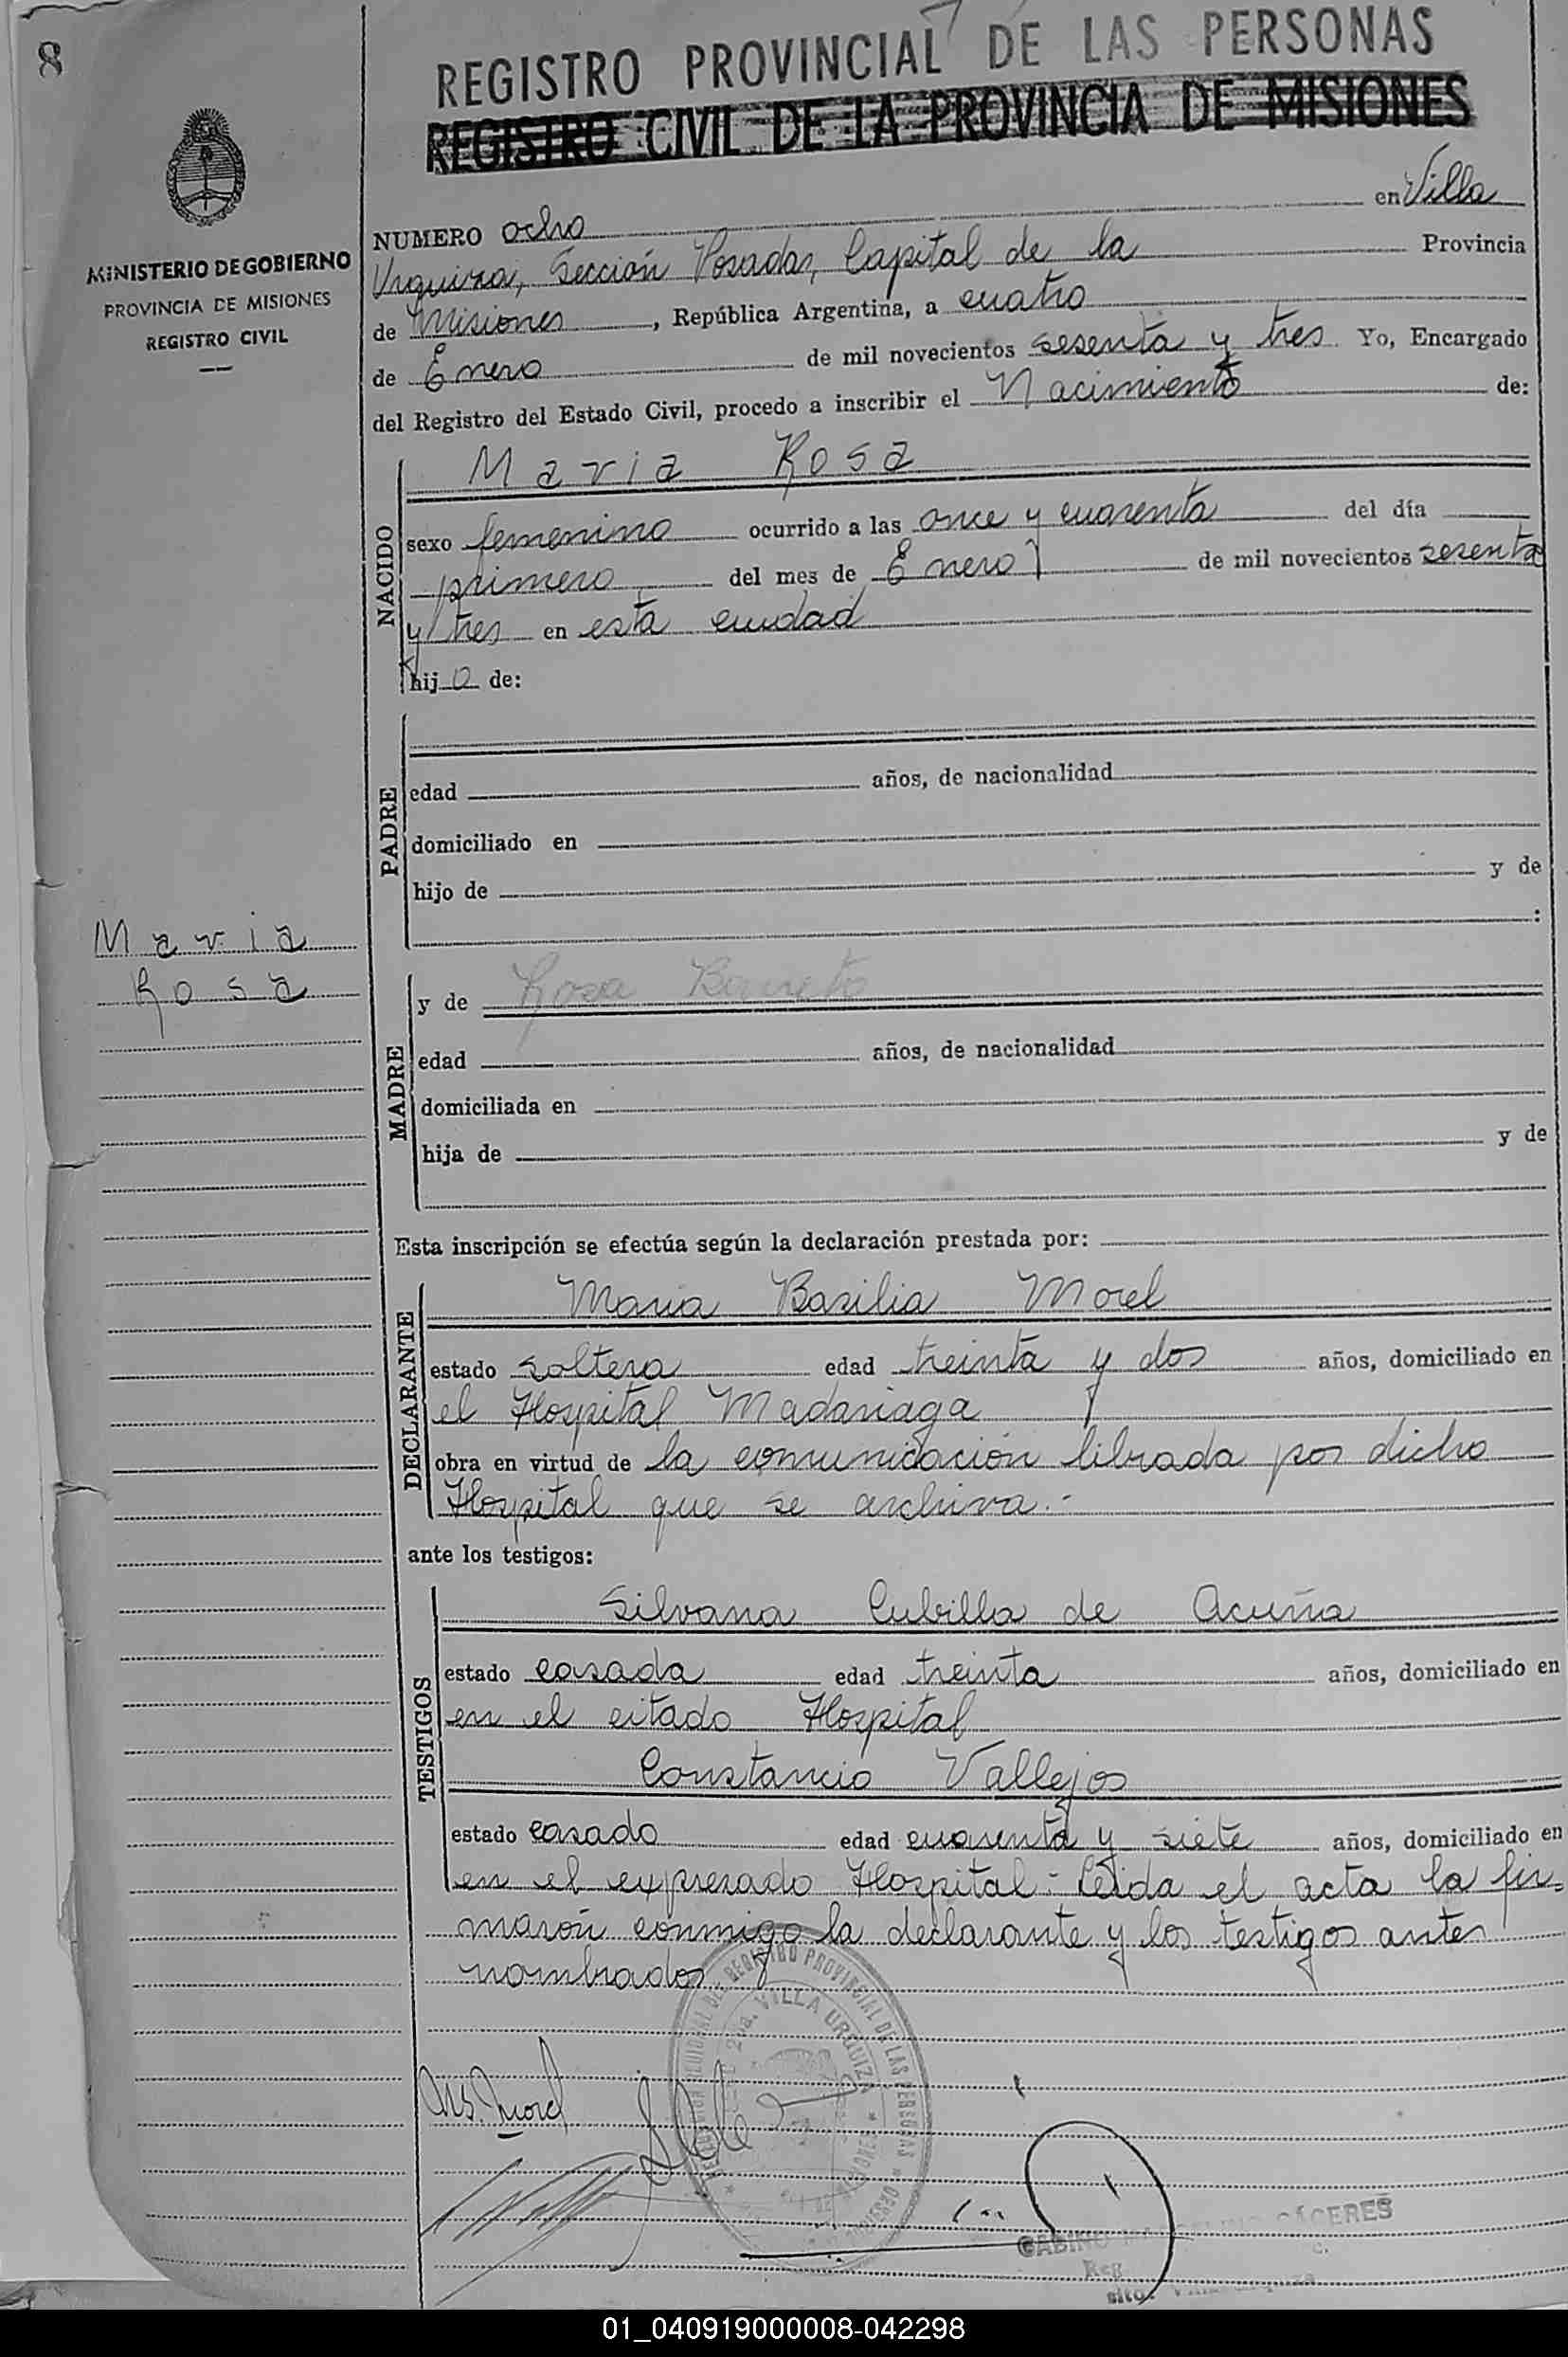 8
REGISTRO PROVINCIAL DE LAS PERSONAS
REGISTRO CIVIL DE LA PROVINCIA DE MISIONES
MINISTERIO DE GOBIERNO
PROVINCIA DE MISIONES
REGISTRO CIVIL
NUMERO ocho en Villa
Urquiza, Sección Posadas, Capital de la Provincia
de Misiones, República Argentina, a cuatro
de Enero de mil novecientos sesenta y tres Yo, Encargado
del Registro del Estado Civil, procedo a inscribir el Nacimiento de:
NACIDO
Maria Rosa
sexo femenino ocurrido a las once y cuarenta del día
primero del mes de Enero de mil novecientos sesenta
y tres en esta ciudad
hija de:
PADRE
edad años, de nacionalidad
domiciliado en
hijo de y de
:
Maria
Rosa
MADRE
y de Rosa Barreto
edad años, de nacionalidad
domiciliada en
hija de y de
Esta inscripción se efectúa según la declaración prestada por:
DECLARANTE
Maria Basilia Morel
estado soltera edad treinta y dos años, domiciliado en
el Hospital Madariaga
obra en virtud de la comunicación librada por dicho
Hospital que se archiva.-
ante los testigos:
TESTIGOS
Silvana Cubilla de Acuña
estado casada edad treinta años, domiciliado en
en el citado Hospital
Constancio Vallejos
estado casado edad cuarenta y siete años, domiciliado en
en el expresado Hospital.- Leida el acta la fir=
marón conmigo la declarante y los testigos antes
nombrados
REGISTRO PROVINCIAL DE LAS PERSONAS
2da. VILLA URQUIZA
Ms. Morel
GABINO CÁCERES
01_040919000008-042298